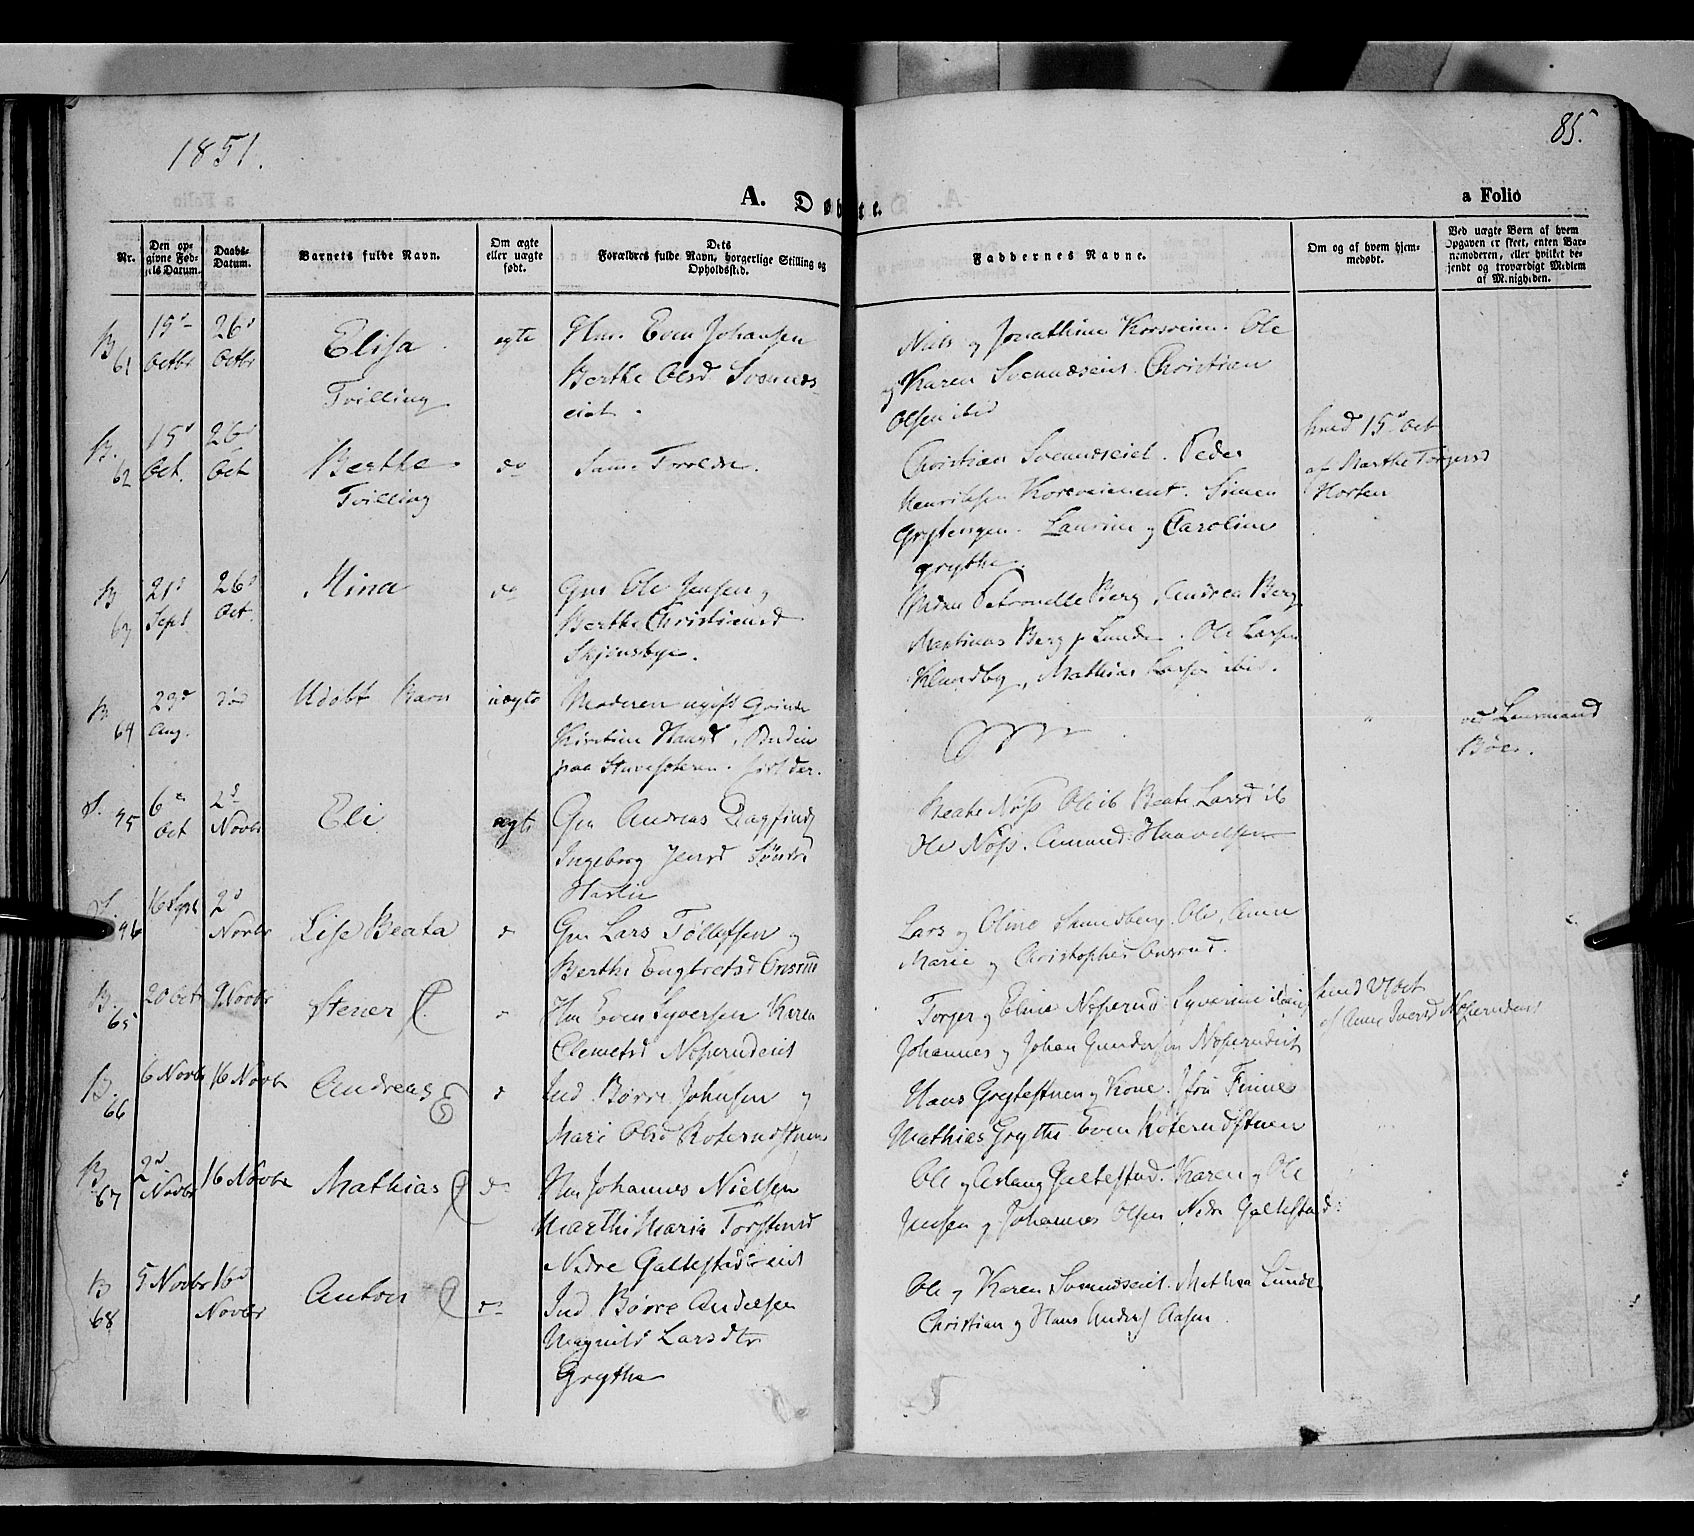 1851.
85.
A. Døbte.
a Folio
Nr.
Den opgivne Fødsels Datum.
Daabs-Datum.
Barnets fulde Navn.
Om ægte eller uægte født.
Dets Forældres fulde Navn, borgerlige Stilling og Opholdssted.
Faddernes Navne.
Om og af hvem hjemmedøbt.
Ved uægte Børn af hvem Opgaven er skeet, enten Barnemoderen, eller hvilket bekjendt og troværdigt Medlem af Menigheden.
B 61
15d Octbr
26d Octbr
Elisa
Tvilling
egte
Hm. Even Johansen
Berthe Olsd Svennds
eiet.
Niels og Jonathine Korsveien. Ole
og Karen Svendseiet. Christian
Olsen ibid
B. 62
15d Oct.
26d Oct
Berthe
Tvilling
do
Samme Forældre.
Christian Svendseiet. Peder
Henriksen Korsveien. Simen
Grythengen. Laurine og Caroline
Grythe.
hmd 15d Oct
af Marthe Torgersd
Horten
B 63
21d Sept
26d Oct.
Mina
do
Gm Ole Jensen og
Berthe Christiansd
Skjønsbye.
Petronelle Berg, Andrea Berg
Martinus Berg, Lunde. Ole Larsen
Klundby, Mathias Larsen ibid.
B 64
29d Aug.
død
Udøbt Barn
uægte
Moderen ugift Qvinde
Kirstine Hansd.
paa
ved Lensmand
Böe.
S. 95
6d Oct
2d Novbr
Eli
ægte
Gm Andreas Dagfinds
Ingeborg Jensd Søndre
Harlie
Beate Nøss Ole ib Beate Larsd ib
Ole Nøss. Amund Haavelsen
S. 96
16 Sept
2d Novbr
Lise Beata
do
Gm Lars Tollefsen og
Berthe Engbretsd Onsrud
Lars og Oline Ole, Anne
Marie og Christopher Onsrud.
B. 65
20 Oct
9 Novbr
Stener
Hm Even Syversen Karen
Clemetsd Noserudeiet
Torger og Eline Noserud Syverine ibid
Johannes og Johan Gundersen Noserudeiet
hmd 27 Oct
af Anne Iversd Noserudeiet
B. 66
6 Novbr
16 Novbr
Andreas
do
Ind. Børre Johnsen og
Mari Olsd Roterudstuen
Hans Grytestuen og Kone. Finne
Mathias Grythe Even Roterudstuen
B 67
2d Novbr
16 Novbr
Mathias
do
Hm Johannes Nielsen
Marthe Maria Torstensd
Nedre Galtestadeiet
Ole og Aslaug Galtestad. Karen og Ole
Jensen og Johannes Olsen Nedre Galtestad
B 68
5 Novbr
16d Novbr
Anton
do
Ind. Børre Andersen
Magnild Larsdtr
Grythe
Ole og Karen Svendseiet. Mathea Lunde
Christian og Hans Anders Aasen.